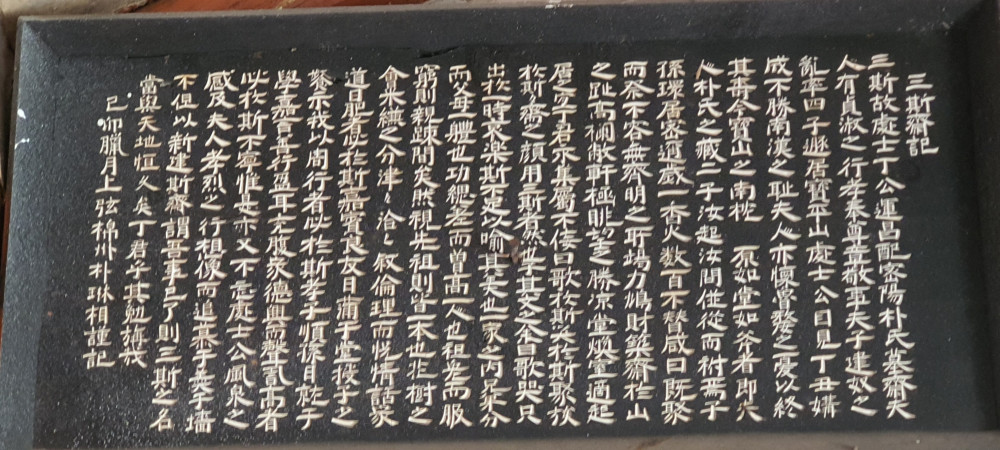 三斯齋記
三斯故處士丁公運昌配密陽朴氏墓齋夫
人有貞淑之行孝奉尊章敬事夫子逮奴之
亂率四子遯居寶平山處士公目見丁丑媾
成不勝南漢之耻夫人亦懷婺之憂以終
其壽今寶山之南枕 原如堂如斧者即夫
人朴氏之藏二子汝起汝問從而祔焉子
孫環居密邇歲一香火數百不替咸曰既聚
而祭不容無齋明之所力鳩財築齋於山
之趾高欄敞軒極眺望之勝凉堂燠室適起
居之君示其屬不佞曰歌於斯哭於斯聚於
於斯齋之顔用三斯者其文之余曰歌哭只
出於一時哀樂斯不足喻其美也一家之内
而父母一體也功緦差而曾高一人也祖免而服
窮則親疎間矣然視先祖則皆本也花樹之
會之分津〻洽〻敍倫理而悅情話
道者必於斯嘉賓良友日于堂授子之
餐示我以周行者必於斯孝子順孫月于
學嘉言善行盈耳充腹家德興而聲氣高者
必於斯不寧惟是亦又不忘處士公風泉之
感及夫人孝烈之行想像而追慕于羹于墻
不但以新建斯齋謂吾事已了則三斯之名
當與天地恒久矣丁君乎其勉旃哉
己卯臘月上弦綿州朴琳相謹記